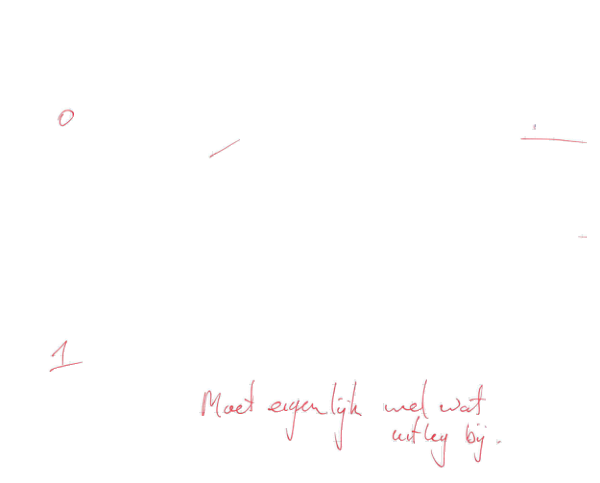 0
1
Moet eigenlijk wel wat
uitleg bij.